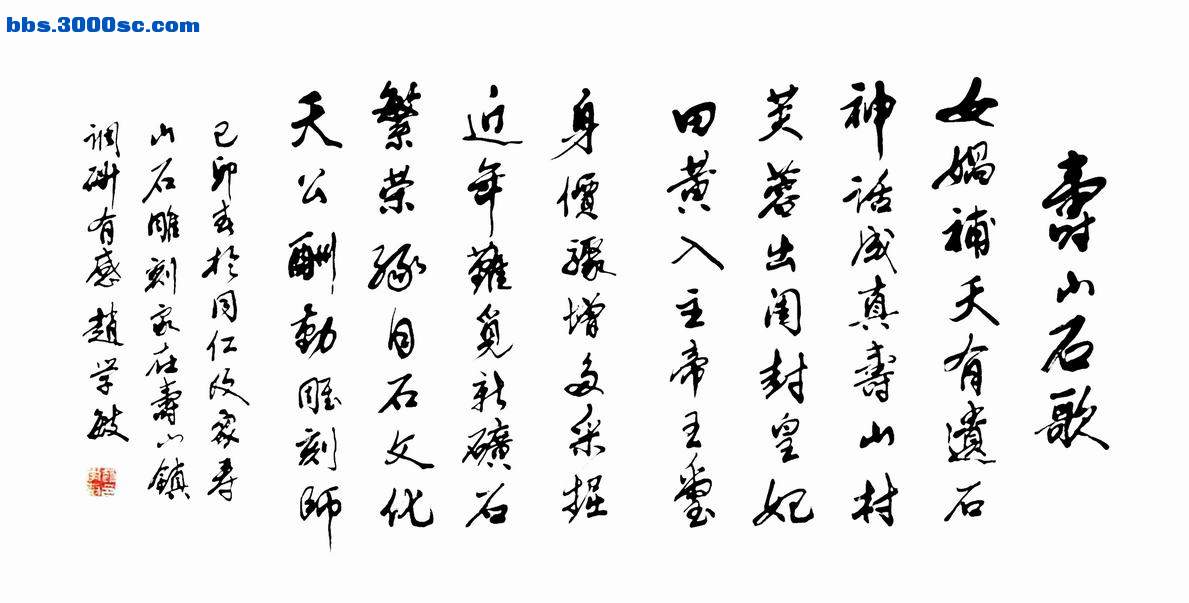 bbs.3000sc.com
壽山石歌
女媧補天有遺石
神話成真壽山村
芙蓉出閨封皇妃
田黃入主帝王璽
身價驟增多采掘
近年難覓新礦石
繁荣緣自石文化
天公酬勤雕刻師
己卯春於同仁及家寿
山石雕刻家在壽山鎮
调研有感趙学敏